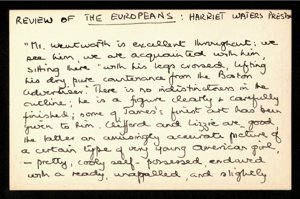 REVIEW OF THE EUROPEANS : HARRIET WATERS PRESTON
"Mr. Wentworth is excellent throughout; we
see him, we are acquainted with him
sitting there "with his legs crossed, lifting
his dry, pure countenance from the Boston
Advertiser." There is no indistinctness in the
outline; he is a figure clearly & carefully
finished; some of James's finest art has been
given to him. Clifford and Lizzie are good
the latter an amusingly accurate picture of
a certain type of very young American girl,
— pretty, cooly self-possessed, endowed
with a ready, unappalled, and slightly